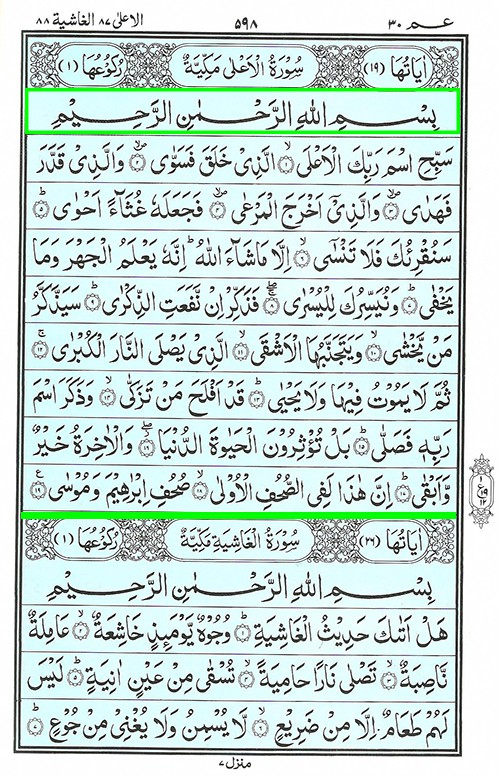 عـم ٣٠ ٥٩٨ الاعلى ٨٧ الغاشية ٨٨
اٰيَاتُهَا (١٩) سُوْرَةُ الْاَعْلٰى مَكِّيَّةٌ رُكُوْعُهَا (١)
بِسْمِ اللّٰهِ الرَّحْمٰنِ الرَّحِيْمِ
سَبِّحِ اسْمَ رَبِّكَ الْاَعْلَى ۙ﴿١﴾ الَّذِىْ خَلَقَ فَسَوّٰى ۪ۙ﴿٢﴾ وَالَّذِىْ قَدَّرَ
فَهَدٰى ۪ۙ﴿٣﴾ وَالَّذِىْٓ اَخْرَجَ الْمَرْعٰى ۪ۙ﴿٤﴾ فَجَعَلَهٗ غُثَآءً اَحْوٰى ؕ﴿٥﴾
سَنُقْرِئُكَ فَلَا تَنْسٰٓى ۙ﴿٦﴾ اِلَّا مَا شَآءَ اللّٰهُ ؕ اِنَّهٗ يَعْلَمُ الْجَهْرَ وَمَا
يَخْفٰى ؕ﴿٧﴾ وَنُيَسِّرُكَ لِلْيُسْرٰى ۚۖ﴿٨﴾ فَذَكِّرْ اِنْ نَّفَعَتِ الذِّكْرٰى ؕ﴿٩﴾ سَيَذَّكَّرُ
مَنْ يَّخْشٰى ۙ﴿١٠﴾ وَيَتَجَنَّبُهَا الْاَشْقَى ۙ﴿١١﴾ الَّذِىْ يَصْلَى النَّارَ الْكُبْرٰى ۚ﴿١٢﴾
ثُمَّ لَا يَمُوْتُ فِيْهَا وَلَا يَحْيٰى ؕ﴿١٣﴾ قَدْ اَفْلَحَ مَنْ تَزَكّٰى ۙ﴿١٤﴾ وَذَكَرَ اسْمَ
رَبِّهٖ فَصَلّٰى ؕ﴿١٥﴾ بَلْ تُؤْثِرُوْنَ الْحَيٰوةَ الدُّنْيَا ۖ﴿١٦﴾ وَالْاٰخِرَةُ خَيْرٌ
وَّاَبْقٰى ؕ﴿١٧﴾ اِنَّ هٰذَا لَفِى الصُّحُفِ الْاُوْلٰى ۙ﴿١٨﴾ صُحُفِ اِبْرٰهِيْمَ وَمُوْسٰى ﴿١٩﴾
١ ع ١٩ ١٢
اٰيَاتُهَا (٢٦) سُوْرَةُ الْغَاشِيَةِ مَكِّيَّةٌ رُكُوْعُهَا (١)
بِسْمِ اللّٰهِ الرَّحْمٰنِ الرَّحِيْمِ
هَلْ اَتٰىكَ حَدِيْثُ الْغَاشِيَةِ ؕ﴿١﴾ وُجُوْهٌ يَّوْمَئِذٍ خَاشِعَةٌ ۙ﴿٢﴾ عَامِلَةٌ
نَّاصِبَةٌ ۙ﴿٣﴾ تَصْلٰى نَارًا حَامِيَةً ۙ﴿٤﴾ تُسْقٰى مِنْ عَيْنٍ اٰنِيَةٍ ؕ﴿٥﴾ لَيْسَ
لَهُمْ طَعَامٌ اِلَّا مِنْ ضَرِيْعٍ ۙ﴿٦﴾ لَّا يُسْمِنُ وَلَا يُغْنِىْ مِنْ جُوْعٍ ؕ﴿٧﴾
منزل ٧